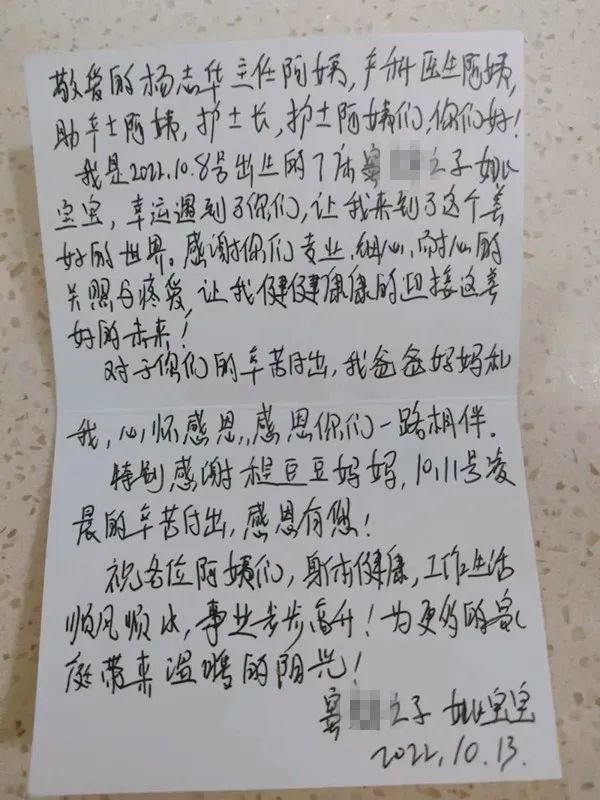 敬爱的杨志华主任阿姨,产科医生阿姨,
助产士阿姨,护士长,护士阿姨们,你们好!
我是2022.10.8号出生的7床 之子
宝宝,幸运遇到了你们,让我来到了这个美
好的世界。感谢你们专业、细心、耐心的
关照与疼爱,让我健健康康的迎接这美
好的未来!
对于你们的辛苦付出,我爸爸妈妈和
我,心怀感恩,感恩你们一路相伴。
特别感谢程豆豆妈妈,10.11号凌
晨的辛苦付出,感恩有您!
祝各位阿姨们,身体健康,工作生活
顺风顺水,事业步步高升!为更多的家
庭带来温暖的阳光!
之子 宝宝
2022.10.13.